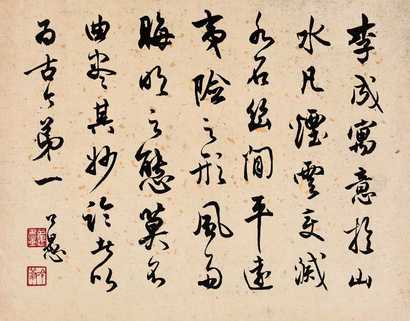 李成寓意於山
水凡煙雲變滅
水石幽閒平遠
夷險之形風雨
晦明之態莫不
曲盡其妙論者以
為古今第一
公愚